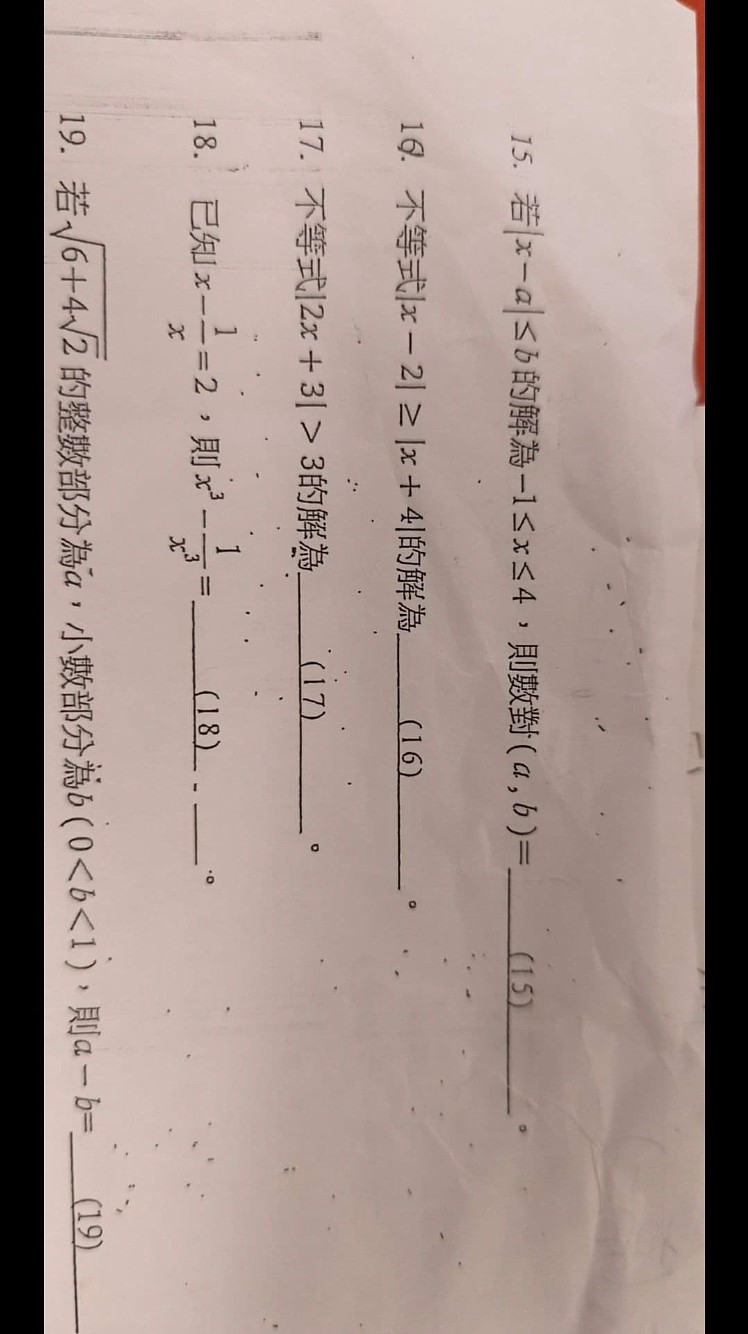 15. 若|x－a|≤b的解為－1≤x≤4，則數對(a,b)=____(15)____。
16. 不等式|x－2|≥|x＋4|的解為____(16)____。
17. 不等式|2x＋3|＞3的解為____(17)____。
18. 已知x－1/x=2，則x³－1/x³=____(18)____。
19. 若√(6＋4√2)的整數部分為a，小數部分為b(0<b<1)，則a－b=____(19)____